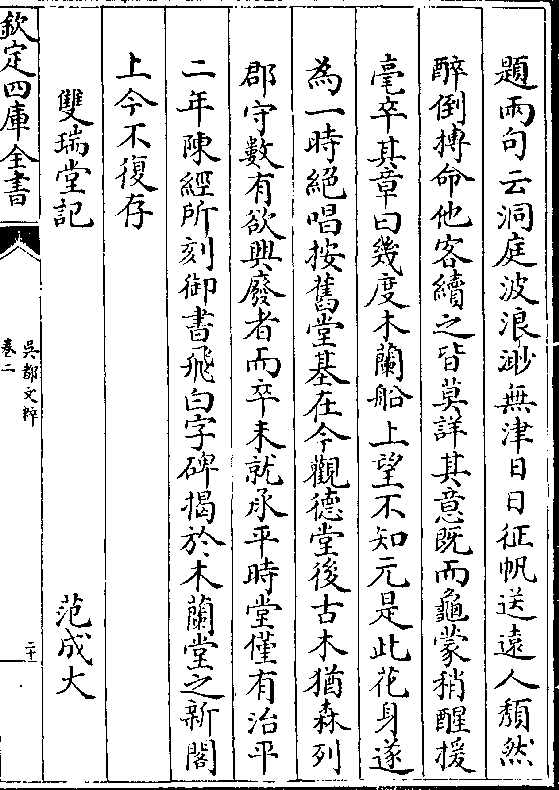 題兩句云洞庭波浪渺無津日日征帆送遠人頹然
醉倒摶命他客續之皆莫詳其意既而龜蒙稍醒援
毫卒其章曰幾度木蘭船上望不知元是此花身遂
為一時絕唱按舊堂基在今觀德堂後古木猶森列
郡守數有欲興廢者而卒未就承平時堂僅有治平
二年陳經所刻御書飛白字碑揭於木蘭堂之新閣
上今不復存
雙瑞堂記 范成大
欽定四庫全書
吳都文粹
卷二
二十